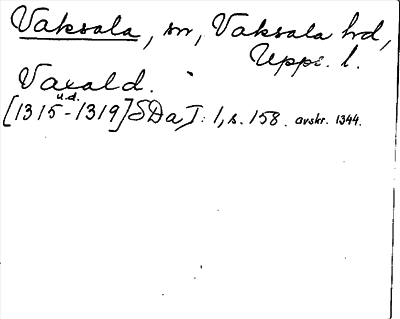 Vaksala, sn, Vaksala hd,
Upps. l.
Vaxald.
u.d.
[1315-1319] SDa, I: 1, s. 158. avskr. 1344.